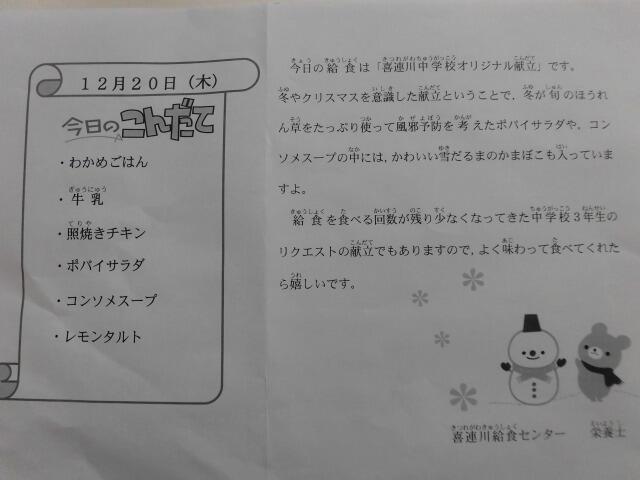 12月20日（木）
今日のこんだて
・わかめごはん
・牛乳
・照焼きチキン
・ポパイサラダ
・コンソメスープ
・レモンタルト
今日の給食は「喜連川中学校オリジナル献立」です。
冬やクリスマスを意識した献立ということで、冬が旬のほうれ
ん草をたっぷり使って風邪予防を考えたポパイサラダや、コン
ソメスープの中には，かわいい雪だるまのかまぼこも入っていま
すよ。
給食を食べる回数が残り少なくなってきた中学校３年生の
リクエストの献立でもありますので，よく味わって食べてくれた
ら嬉しいです。
喜連川給食センター　栄養士